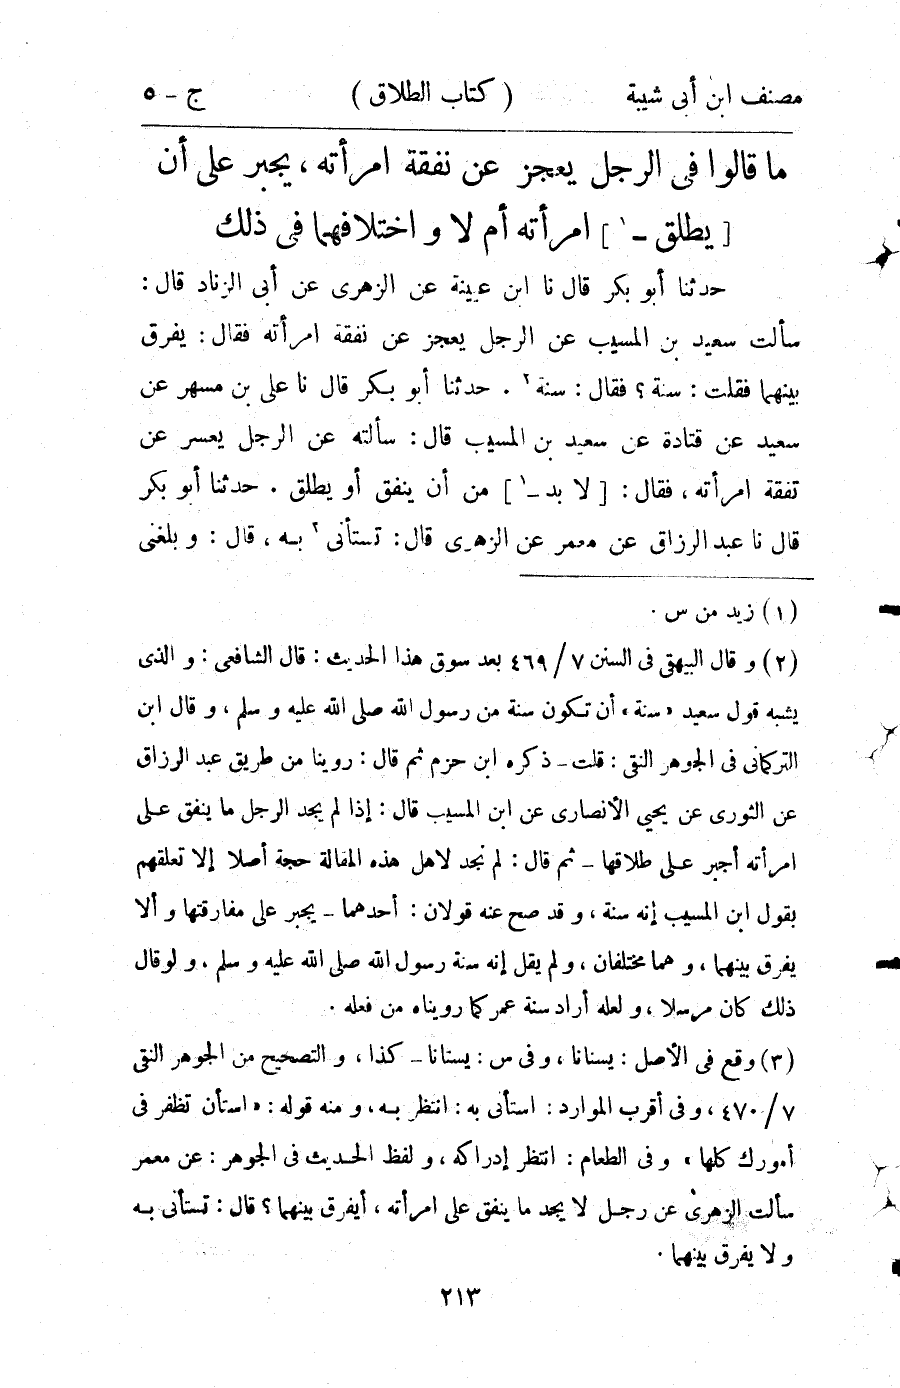 مصنف ابن أبى شيبة ( كتاب الطلاق ) ج - ٥
ما قالوا فى الرجل يعجز عن نفقة امرأته ، يجبر على أن
[ يطلق -١ ] امرأته أم لا و اختلافهما فى ذلك
حدثنا أبو بكر قال نا ابن عيينة عن الزهرى عن أبى الزناد قال :
سألت سعيد بن المسيب عن الرجل يعجز عن نفقة امرأته فقال : يفرق
بينهما فقلت : سنة ؟ فقال : سنة٢ . حدثنا أبو بكر قال نا على بن مسهر عن
سعيد عن قتادة عن سعيد بن المسيب قال : سألته عن الرجل يعسر عن
نفقة امرأته ، فقال : [ لا بد -١ ] من أن ينفق أو يطلق . حدثنا أبو بكر
قال نا عبد الرزاق عن معمر عن الزهرى قال : تستأنى٢ بـه ، قال : و بلغنى
(١) زيد من س .
(٢) و قال البيهقى فى السنن ٧ / ٤٦٩ بعد سوق هذا الحديث : قال الشافعى : و الذى
يشبه قول سعيد « سنة » أن تكون سنة من رسول الله صلى الله عليه و سلم ، و قال ابن
التركمانى فى الجوهر النقى : قلت - ذكره ابن حزم ثم قال : روينا من طريق عبد الرزاق
عن الثورى عن يحيى الأنصارى عن ابن المسيب قال : إذا لم يجد الرجل ما ينفق عـلى
امرأته أجبر عـلى طلاقها - ثم قال : لم نجد لاهل هذه المقالة حجة أصلا إلا تعلقهم
بقول ابن المسيب إنه سنة ، و قد صح عنه قولان : أحدهما - يجبر على مفارقتها و ألا
يفرق بينهما ، و هما مختلفان ، و لم يقل إنه سنة رسول الله صلى الله عليه و سلم . و لو قال
ذلك كان مرسلا ، و لعله أراد سنة عمر كما رويناه من فعله .
(٣) وقع فى الأصل : يسنانا ، و فى س : يستانا - كذا ، و التصحيح من الجوهر النقى
٧ / ٤٧٠ ، و فى أقرب الموارد : استأنى به : انتظر بـه ، و منه قوله : « استأن تظفر فى
أمورك كلها » و فى الطعام : انتظر إدراكه ، و لفظ الحـديث فى الجوهر : عن معمر
سألت الزهرى عن رجـل لا يجد ما ينفق على امرأته ، أيفرق بينهما ؟ قال : تستأنى بـه
و لا يفرق بينهما .
٢١٣